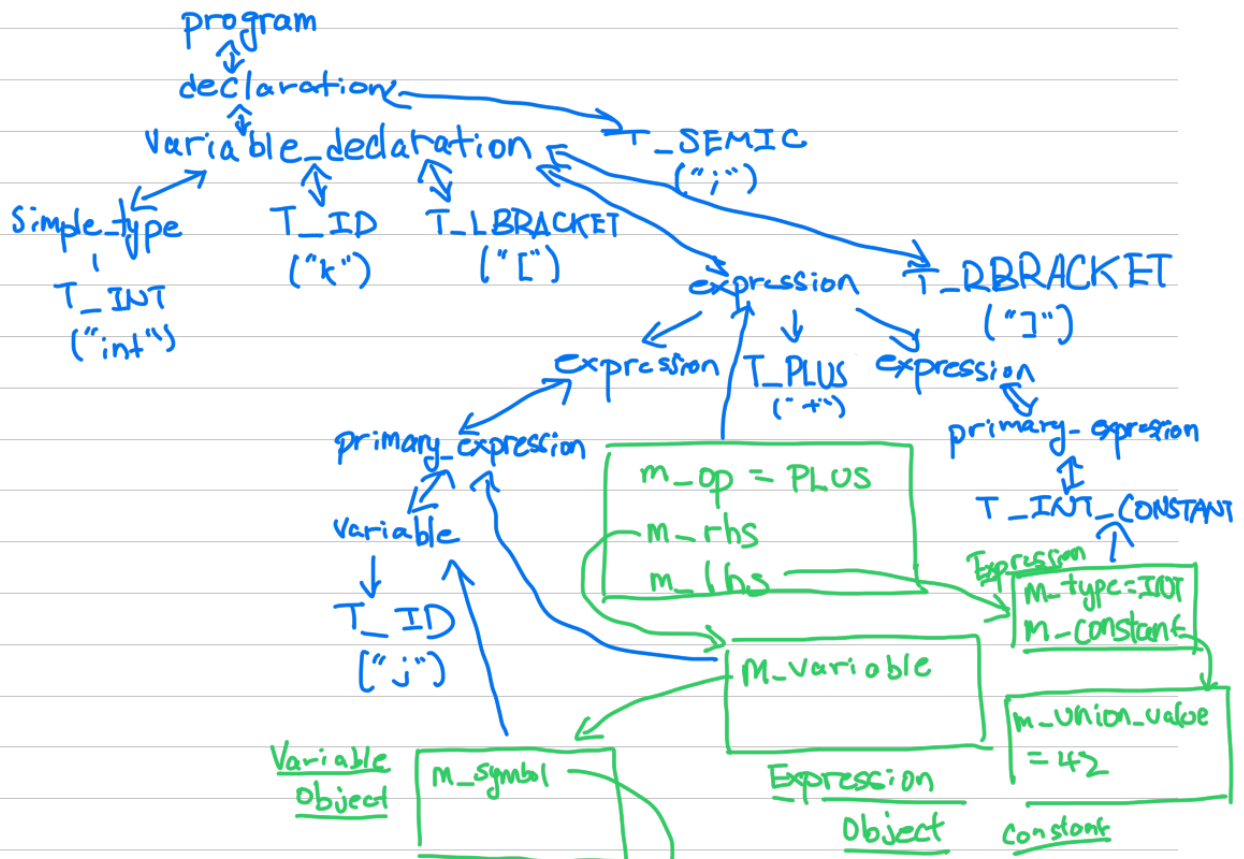 program
declaration
variable_declaration
T_SEMIC
(";")
simple_type
T_ID
T_LBRACKET
("k")
("[")
T_INT
("int")
expression
T_RBRACKET
("]")
expression
T_PLUS
expression
("+")
primary_expression
primary_expression
m_op = PLUS
T_INT_CONSTANT
variable
m_rhs
m_lhs
Expression
m_type=INT
m_constant
T_ID
("j")
m_variable
m_union_value
= 42
Variable
Object
m_symbol
Expression
Object
Constant